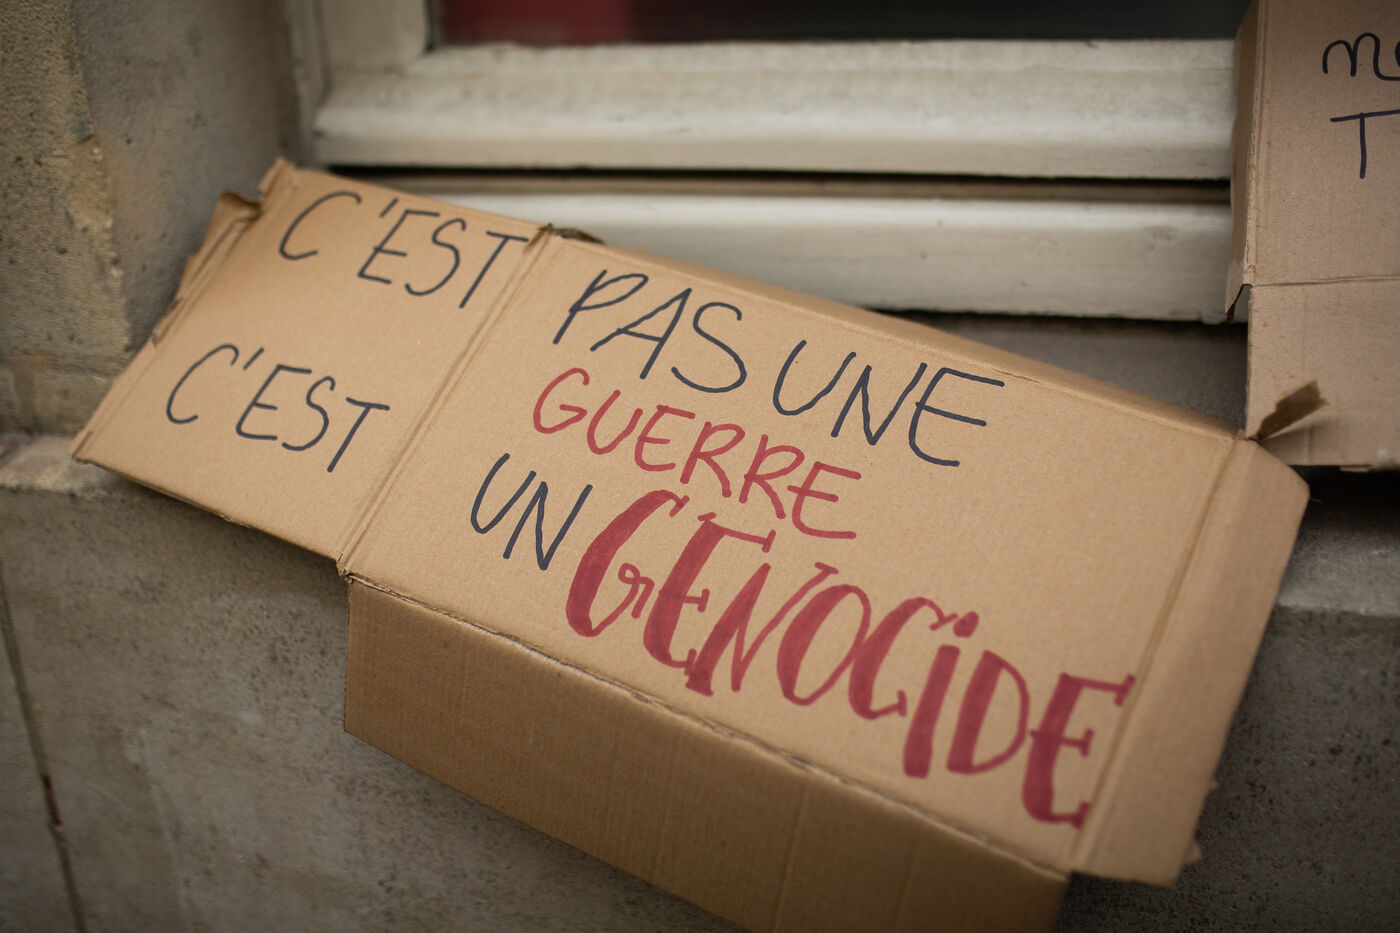 C'EST PAS UNE
GUERRE
C'EST UN GENOCIDE
T